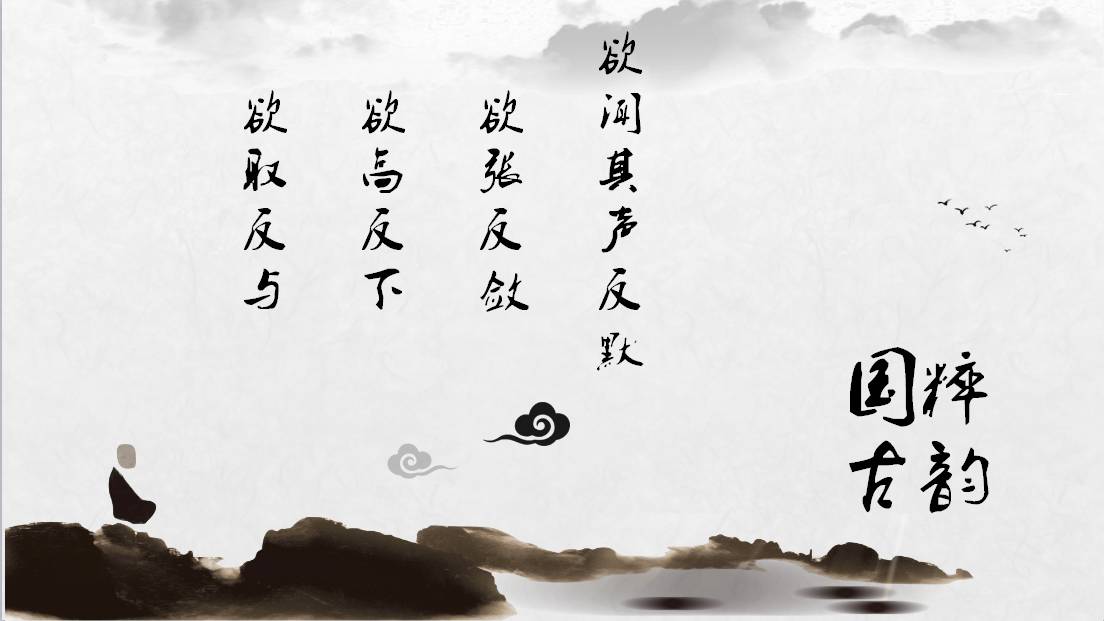 欲闻其声反默
欲张反敛
欲高反下
欲取反与
国粹
古韵